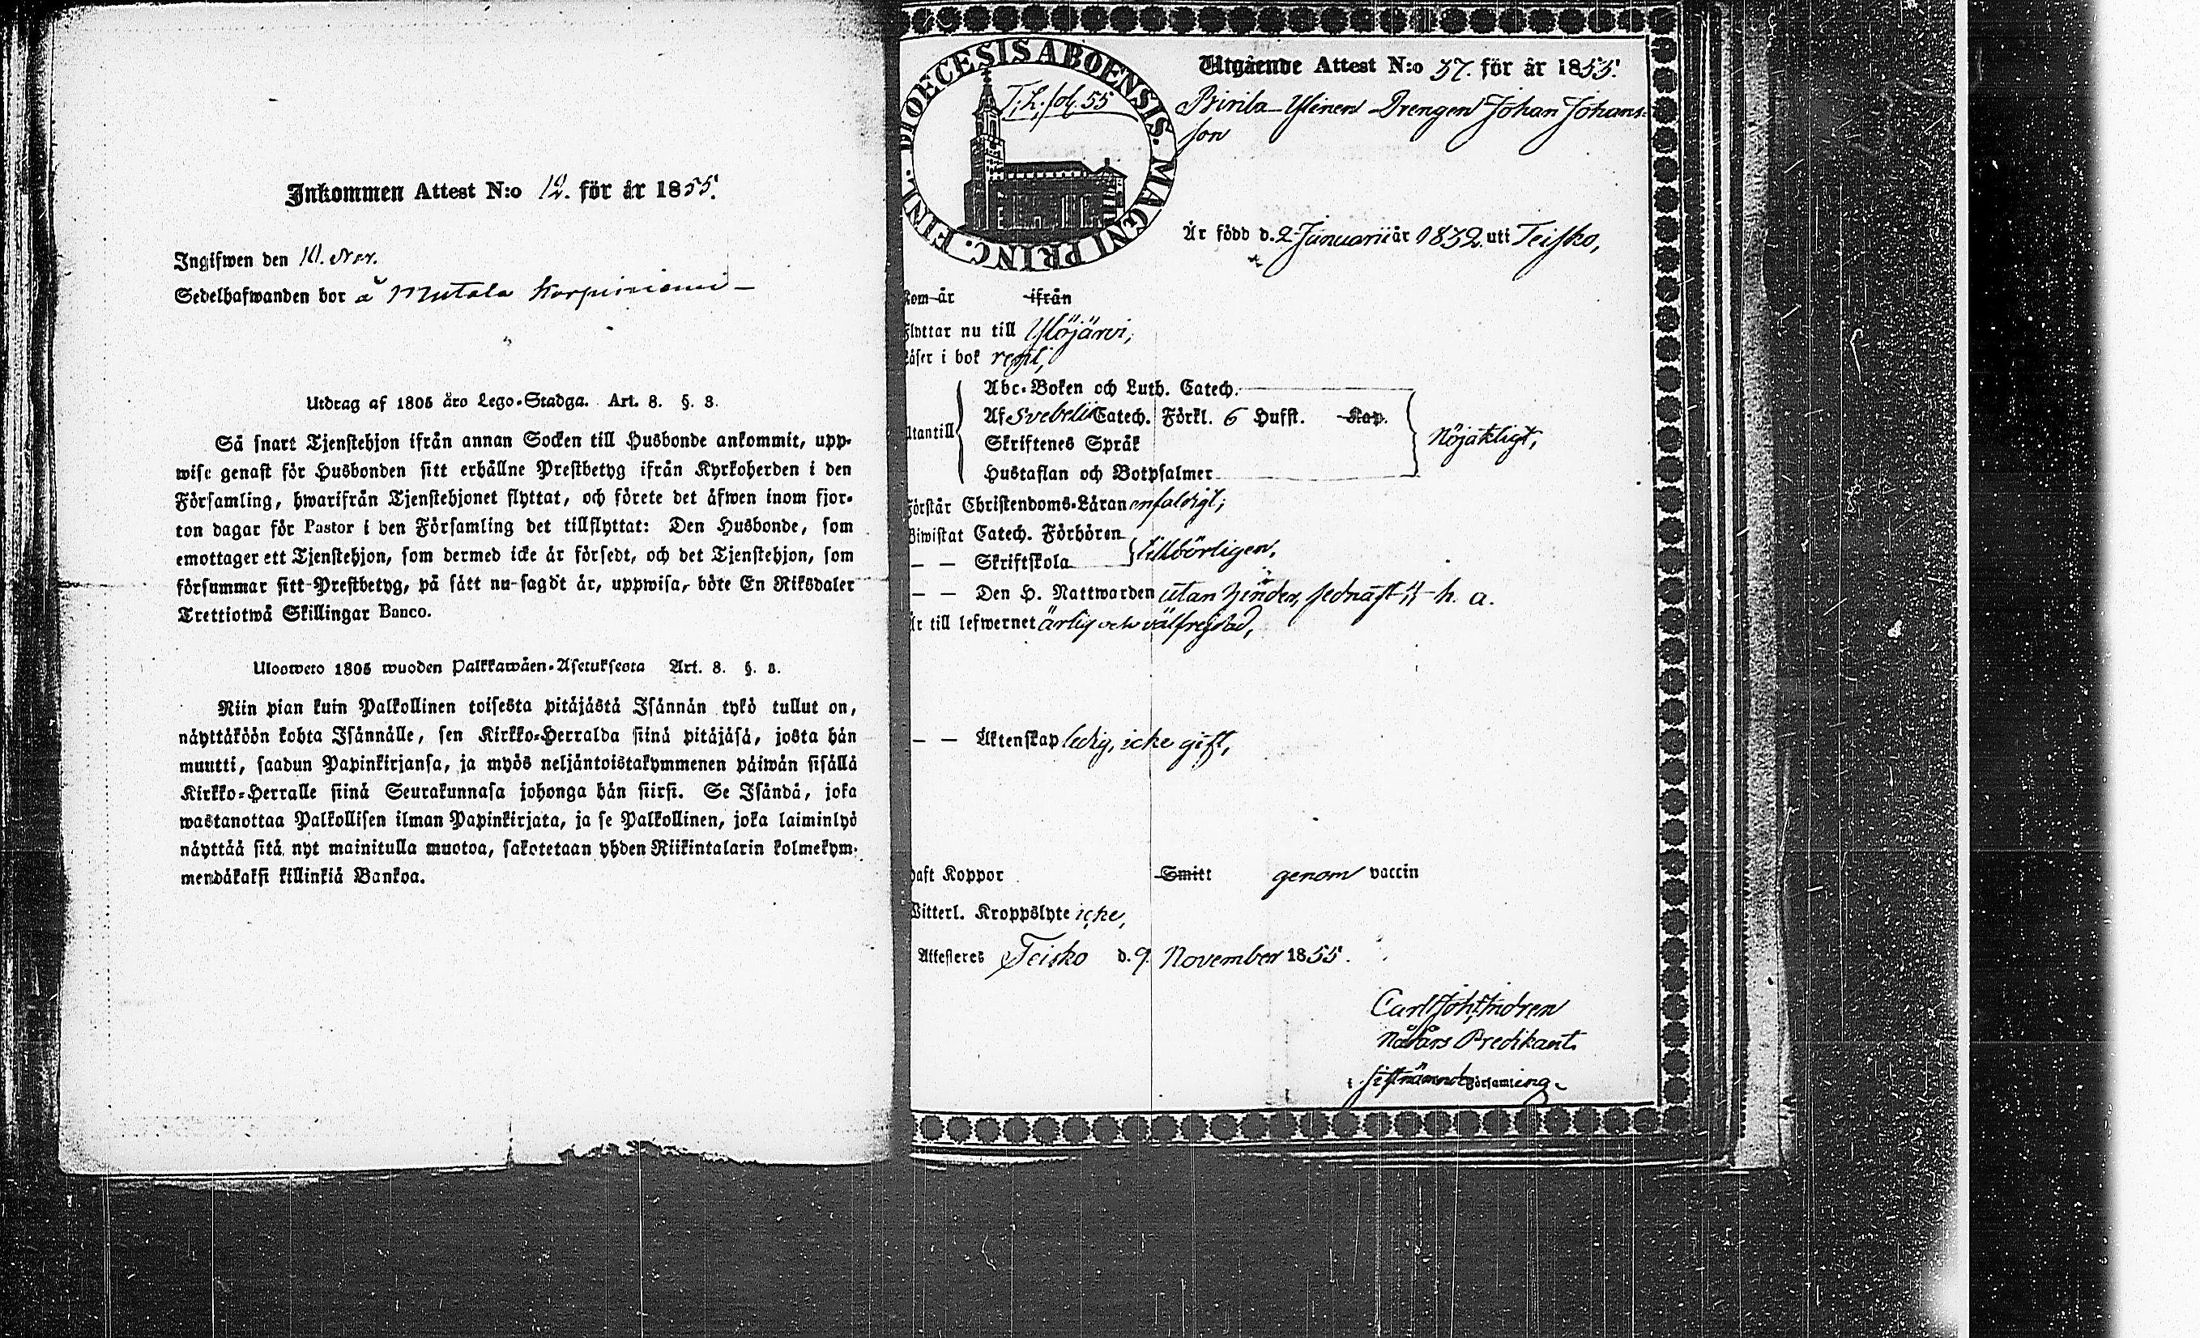 Inkommen Attest N:o 12. för år 1855.
Ingifwen den 10. Nov.
Sedelhafwanden bor å Mutala Korpiniemi
Utdrag af 1805 års Lego-Stadga. Art. 8. §. 8.
Så snart Tjenstehjon ifrån annan Socken till Husbonde ankommit, upp-
wise genast för Husbonden sitt erhållne Prestbetyg ifrån Kyrkoherden i den
Församling, hwarifrån Tjenstehjonet flyttat, och förete det äfwen inom fjor-
ton dagar för Pastor i den Församling det tillflyttat: Den Husbonde, som
emottager ett Tjenstehjon, som dermed icke är försedt, och det Tjenstehjon, som
försummar sitt Prestbetyg, på sätt nu sagdt är, uppwisa, böte En Riksdaler
Trettiotwå Skillingar Banco.
Ulosweto 1805 wuoden Palkkawäen-Asetuksesta Art. 8. §. 8.
Niin pian kuin Palkollinen toisesta pitäjästä Isännän tykö tullut on,
näyttäköön kohta Isännälle, sen Kirkko-Herralda siinä pitäjäsä, josta hän
muutti, saadun Papinkirjansa, ja myös neljäntoistakymmenen päiwän sisällä
Kirkko-Herralle siinä Seurakunnasa johonga hän siirsi. Se Isändä, joka
wastanottaa Palkollisen ilman Papinkirjata, ja se Palkollinen, joka laiminlyö
näyttää sitä nyt mainitulla muotoa, sakotetaan yhden Riikintalarin kolmekym-
mendäkaksi killinkiä Bankoa.
DIOECESIS ABOENSIS. MAGNI PRINC. FINL.
T. L. fol. 55
Utgående Attest N:o 57. för år 1855.
Pirila Yleinen Drengen Johan Johans-
son
Är född d. 2 Januarii år 1832 uti Teisko,
Kom år ifrån
Flyttar nu till Ylöjärvi,
Läser i bok
Utantill
Abc-Boken och Luth. Catech.
Af Svebelii Catech. Förkl. 6 Hufst. Kap.
Skriftenes Språk
Hustaflan och Botpsalmer
Nöjaktligt,
Förstår Christendoms-Läran enfaldigt,
Biwistat Catech. Förhören
— — Skriftskola
tillbörligen,
— — Den H. Nattwarden utan hinder, sednast h. a.
Är till lefwernet ärlig och välfrejdad,
— — Äktenskap ledig, icke gift,
haft Koppor Smitt genom vaccin
Witterl. Kroppslyte icke,
Attesteres Teisko d. 9 November 1855.
Carl Joh.
Nådårs Predikant
i församling.